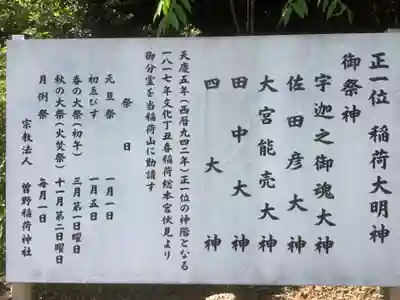 正一位 稲荷大明神
御祭神
宇迦之御魂大神
佐田彦大神
大宮能売大神
田中大神
四大神
天慶五年(西暦九四二年)正一位の神階となる
一八一七年文化丁丑春稲荷総本宮伏見より
御分霊を当稲荷山に勧請す
祭日
元旦祭 一月一日
初ゑびす 一月五日
春の大祭(初午) 三月第一日曜日
秋の大祭(火焚祭) 十一月第二日曜日
月例祭 毎月一日
宗教法人 曽野稲荷神社